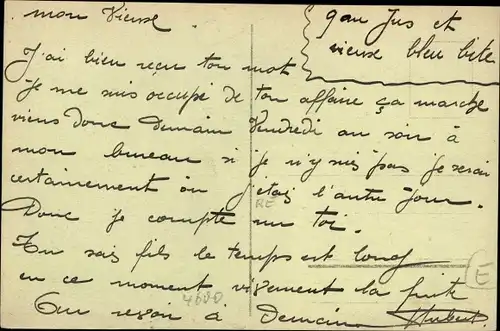 mon Vieux.
J'ai bien reçu ton mot
je me suis occupé de ton affaire ça marche
viens donc Demain Vendredi au soir à
mon bureau si je n'y suis pas je serai
certainement où j'étais l'autre jour.
Donc je compte sur toi.
Tu sais fils le temps est long
en ce moment vivement la fuite
Au revoir à Demain Hubert
Jus et
vieux bleu bite
RE
4600
E